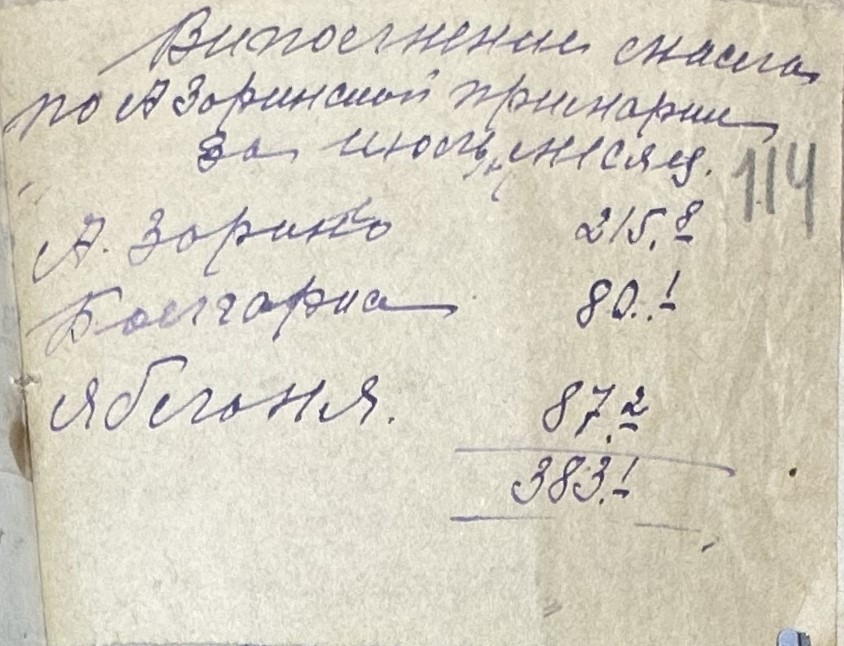 Выполнение масла
по А Зоринской примарии
за июль месяц.
114
А. Зорино 215,8
Болгария 80.1
Яблоня. 87,2
383.1